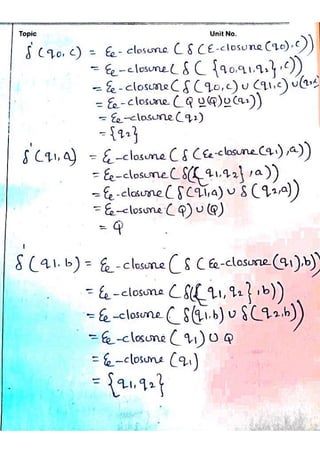 Topic Unit No.
δ'(q0, c) = εe-closure (δ(ε-closure(q0), c))
= εe-closure (δ({q0, q1, q2}, c))
= εe-closure (δ(q0, c) ∪ (q1, c) ∪ (q2, c))
= εe-closure (φ ∪ (φ) ∪ (q2))
= εe-closure (q2)
= {q2}
δ'(q1, a) = εe-closure (δ(εe-closure(q1), a))
= εe-closure (δ({q1, q2}, a))
= εe-closure (δ(q1, a) ∪ δ(q2, a))
= εe-closure (φ) ∪ (φ)
= φ
δ'(q1. b) = εe-closure (δ(εe-closure(q1), b))
= εe-closure (δ({q1, q2}, b))
= εe-closure (δ(q1. b) ∪ δ(q2, b))
= εe-closure (q1) ∪ φ
= εe-closure (q1)
= {q1, q2}